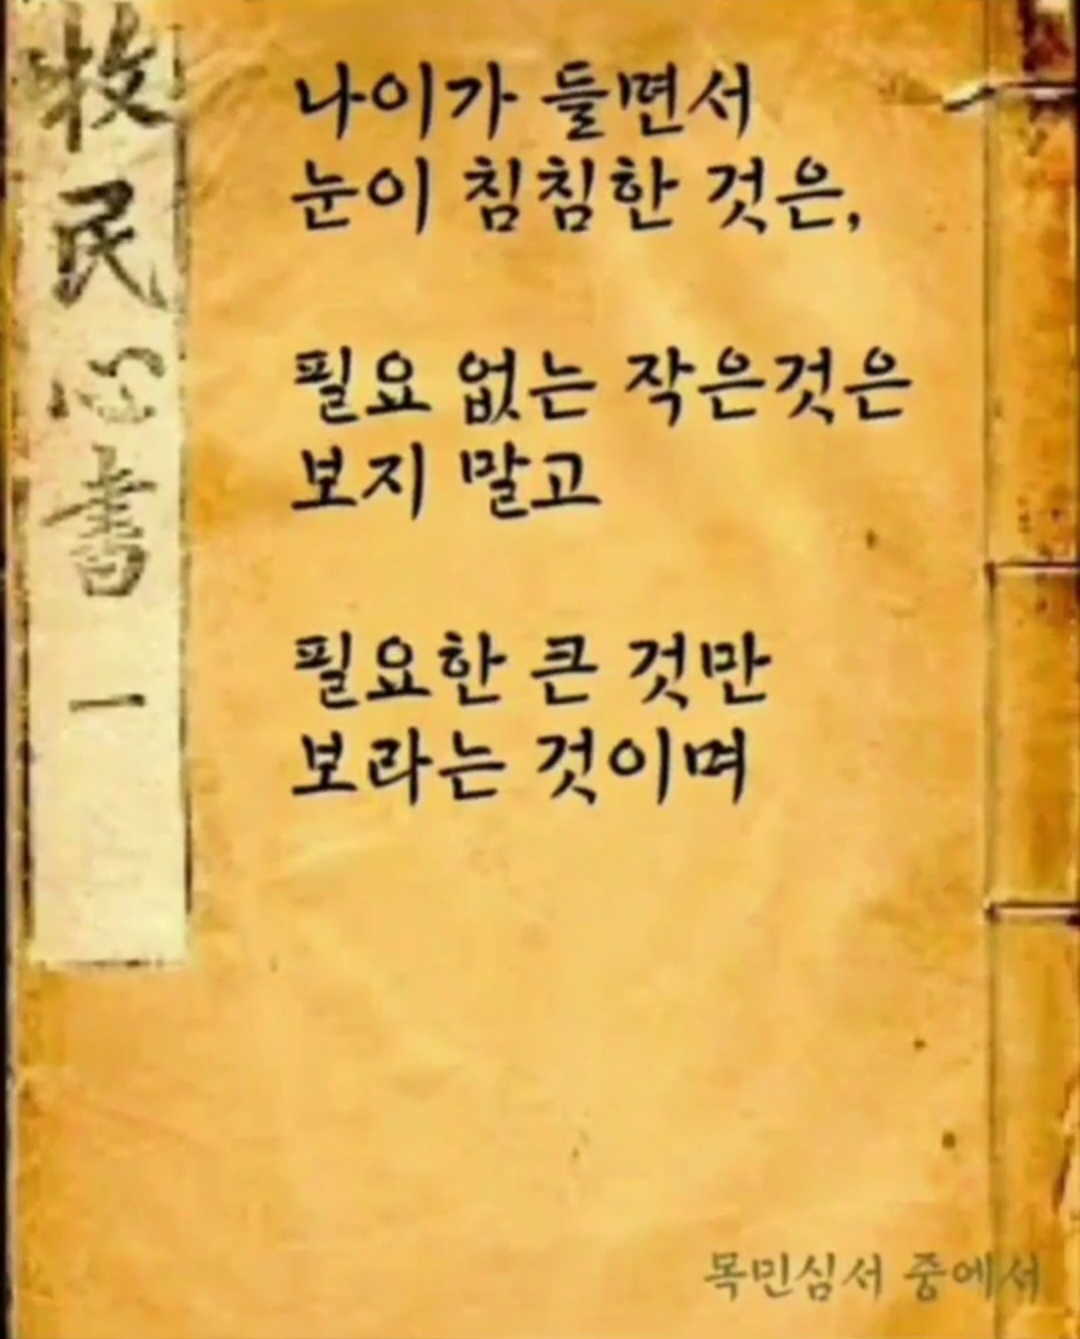 牧民心書 一
나이가 들면서
눈이 침침한 것은,
필요 없는 작은것은
보지 말고
필요한 큰 것만
보라는 것이며
목민심서 중에서